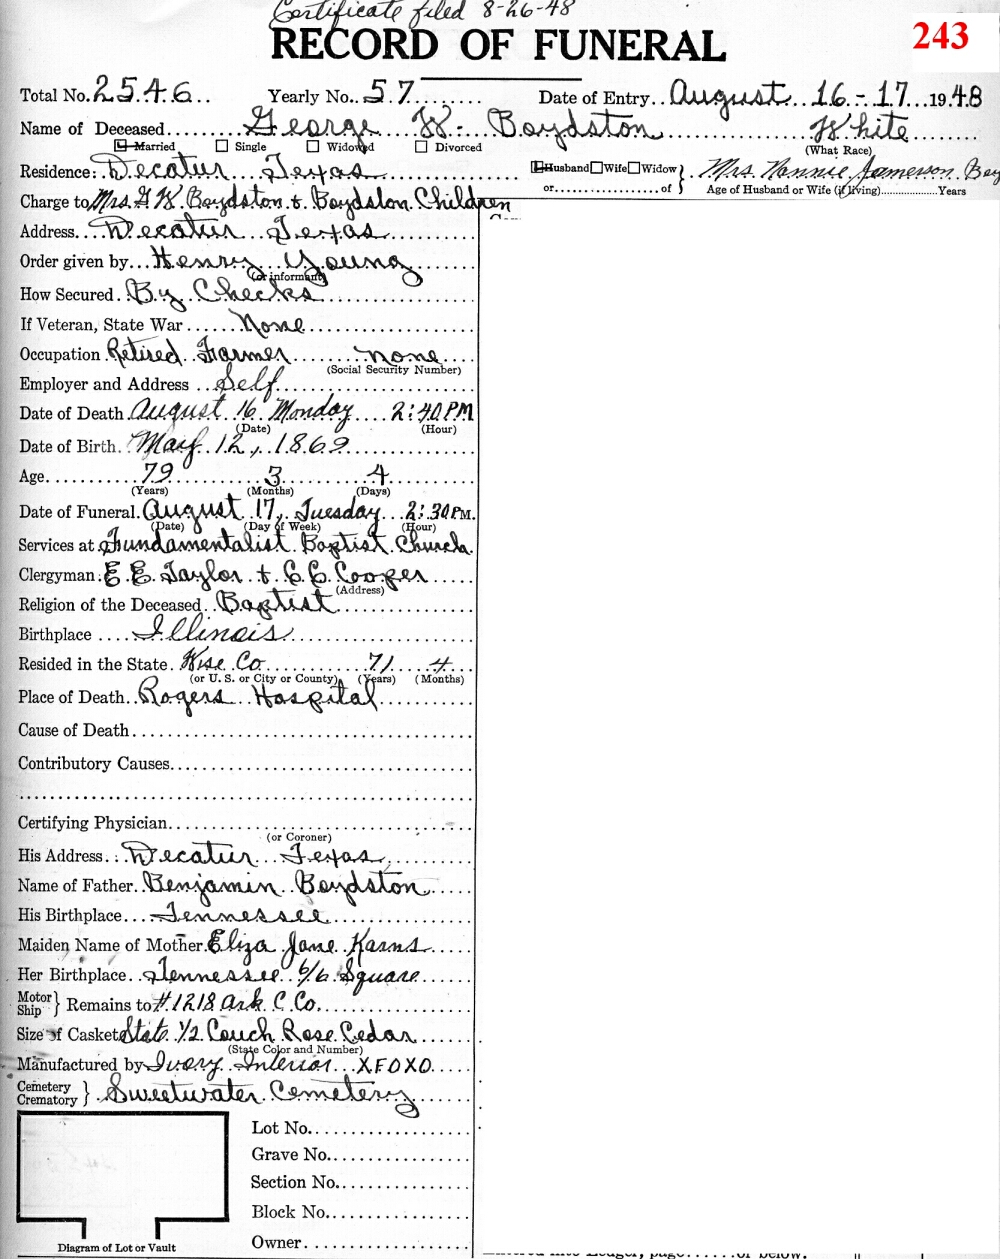 Certificate filed 8-26-48
RECORD OF FUNERAL
243
Total No. 2546 Yearly No. 57 Date of Entry August 16-17 1948
Name of Deceased George W. Boydston White
Married Single Widowed Divorced (What Race)
Residence: Decatur Texas Husband Wife Widow or of } Mrs. Nannie Jamerson Boy
Age of Husband or Wife (if living) Years
Charge to Mrs. G W. Boydston & Boydston Children
Address Decatur Texas
Order given by Henry Young
(or informant)
How Secured By Checks
If Veteran, State War None
Occupation Retired Farmer none
(Social Security Number)
Employer and Address Self
Date of Death August 16 Monday 2:40 PM
(Date) (Hour)
Date of Birth May 12, 1869
Age 79 3 4
(Years) (Months) (Days)
Date of Funeral August 17, Tuesday 2:30 PM.
(Date) (Day of Week) (Hour)
Services at Fundamentalist Baptist Church
Clergyman: E. E. Taylor & C. C. Cooper
(Address)
Religion of the Deceased Baptist
Birthplace Illinois
Resided in the State Wise Co 71 4
(or U. S. or City or County) (Years) (Months)
Place of Death Rogers Hospital
Cause of Death
Contributory Causes
Certifying Physician
(or Coroner)
His Address Decatur Texas
Name of Father Benjamin Boydston
His Birthplace Tennessee
Maiden Name of Mother Eliza Jane Karns
Her Birthplace Tennessee 6/6 Square
Motor Ship } Remains to #1218 Ark C. Co.
Size of Casket State 1/2 Couch Rose Cedar
(State Color and Number)
Manufactured by Ivory Interior XFOXO
Cemetery Crematory } Sweetwater Cemetery
Lot No.
Grave No.
Section No.
Block No.
Owner
Diagram of Lot or Vault